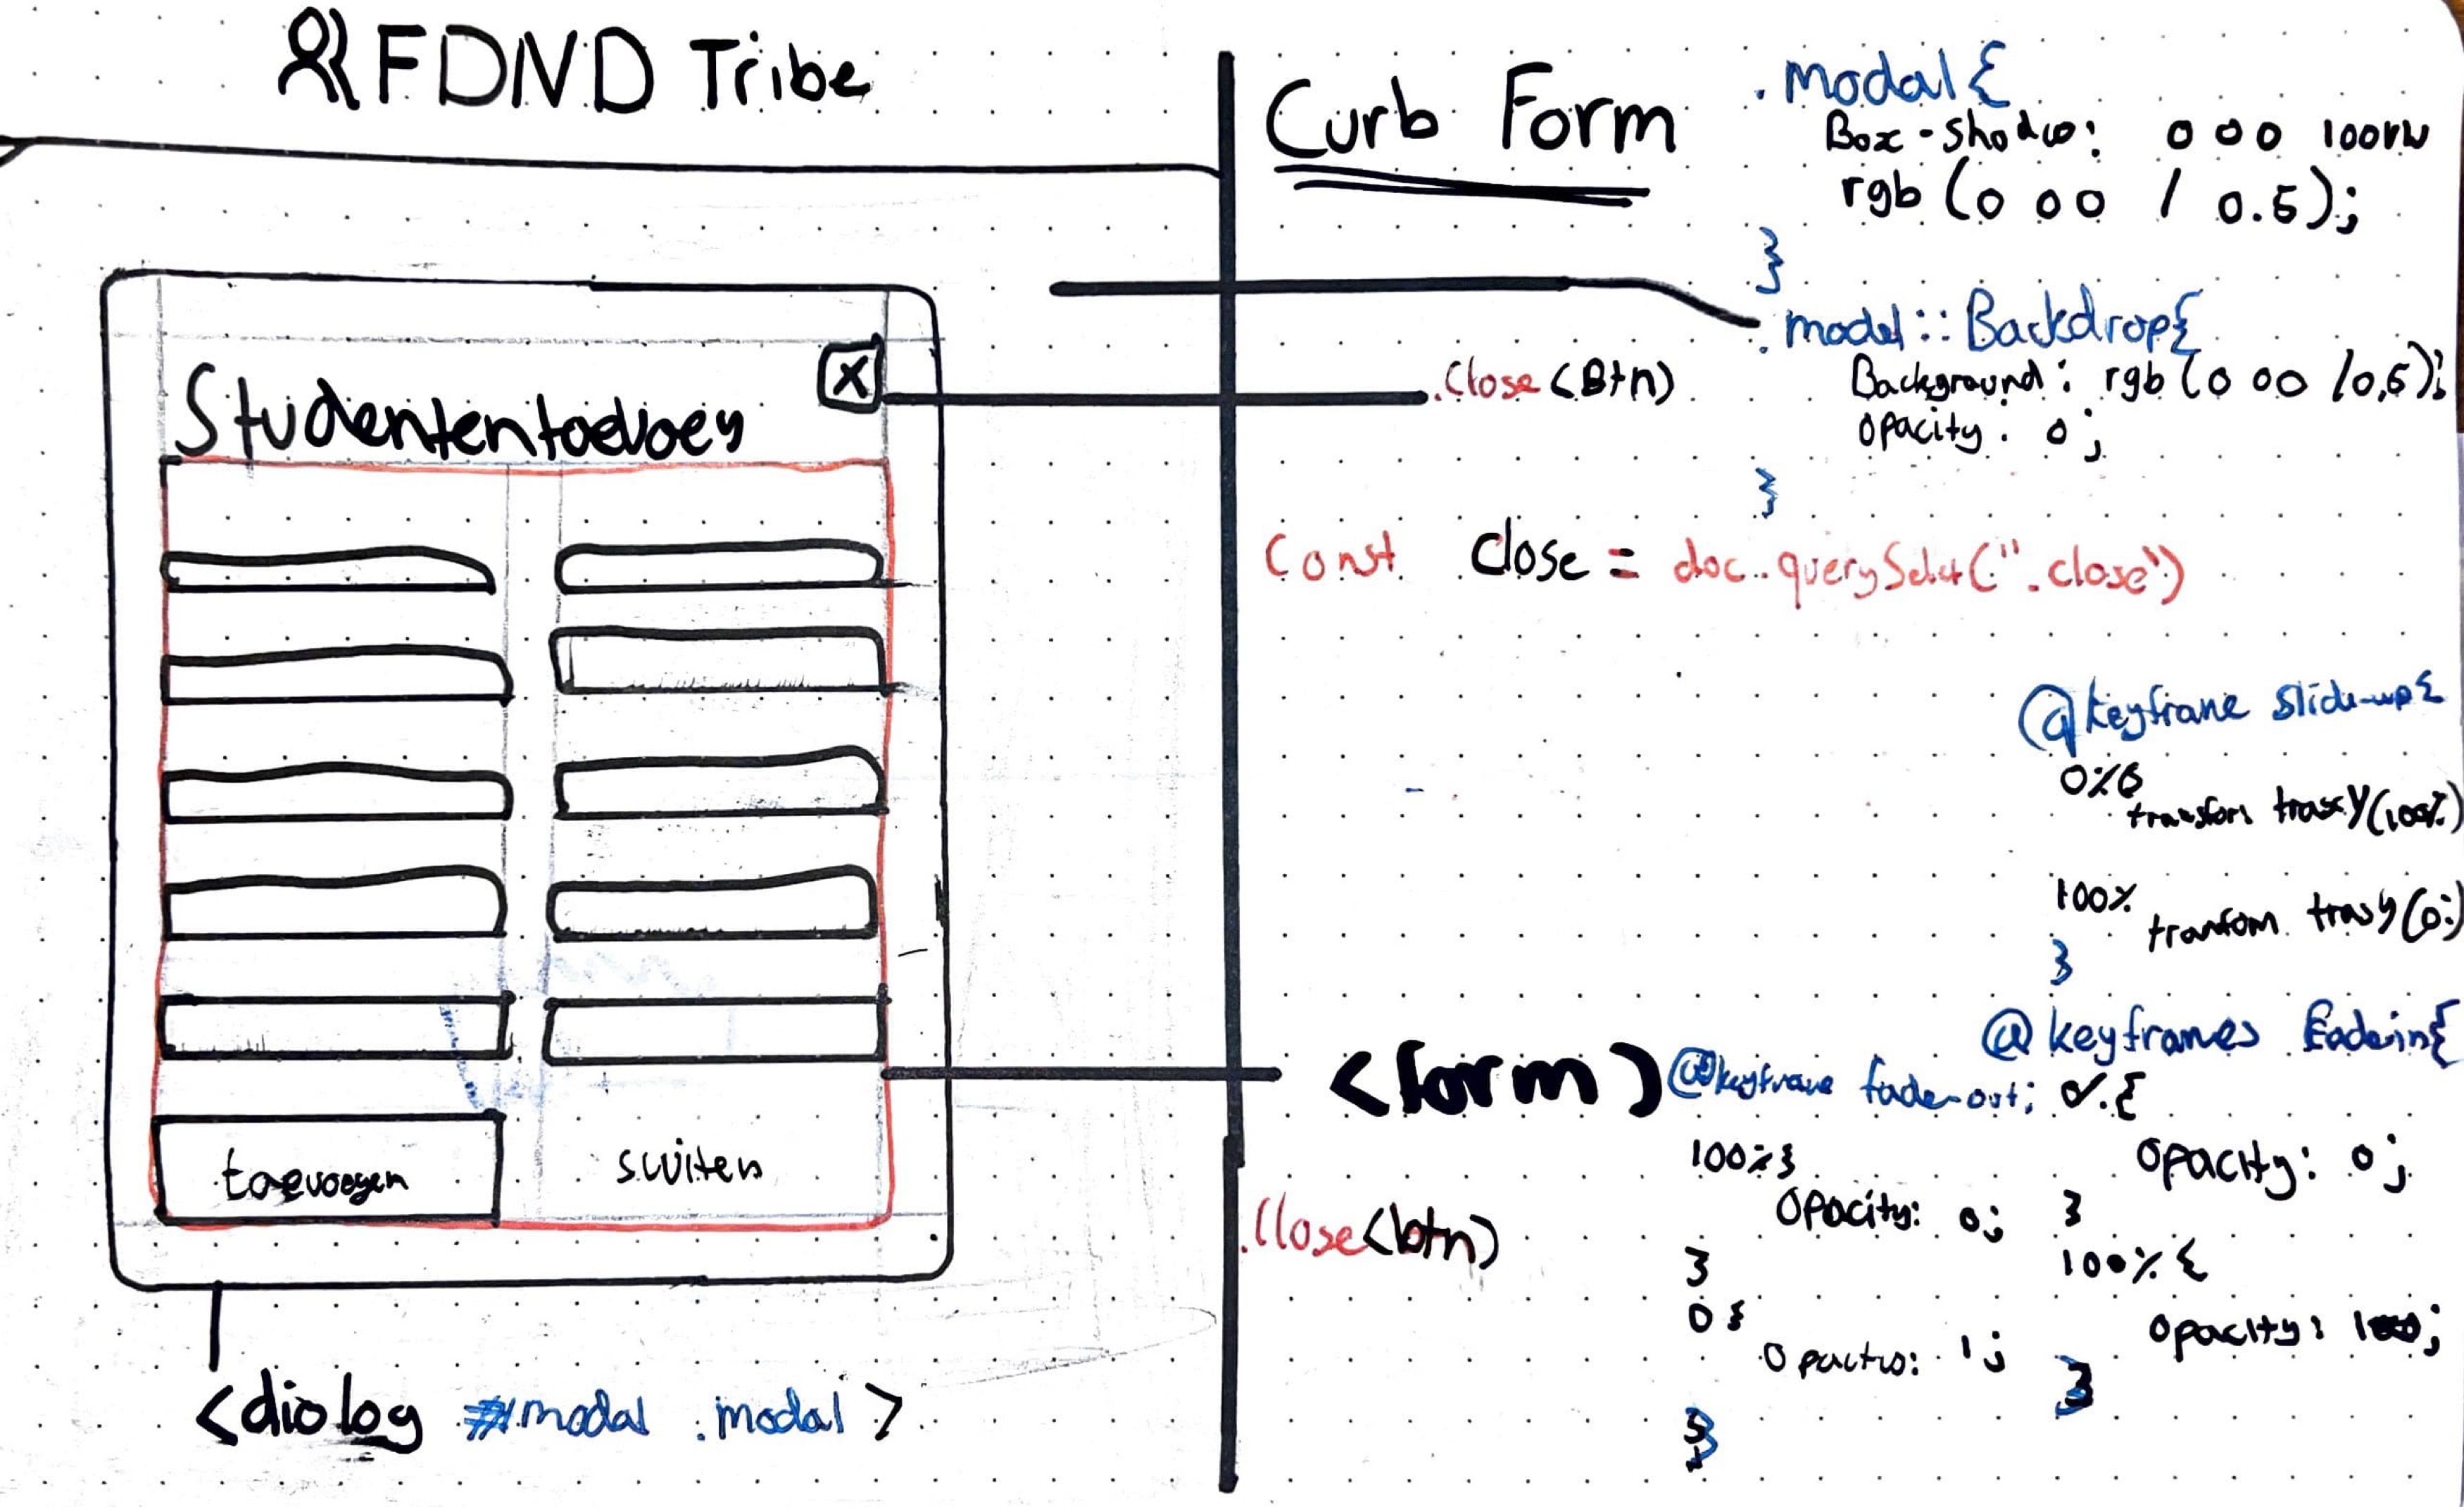 FDND Tribe
Studententoevoeg
X
toevoegen
sluiten
<dialog #modal .modal>
Curb Form
.modal{
Box-shadw: 0 0 0 100vw
rgb (0 0 0 / 0.5);
}
.model::Backdrop{
Background: rgb (0 0 0 /0,5);
opacity: 0;
}
.Close (Btn)
Const Close = doc.querySelct(".close")
@keyfrane slide-up{
0%{
transfom trasY(100%)
100%
tranfom trasy(0;)
}
<form>
.Close<btn)
@keyfrane fade-out;
100%}
Opacity: 0;
}
0 {
Opacity: 1;
}
@keyframes Fadein{
0%{
Opacity: 0;
}
100% {
opacity: 1
}